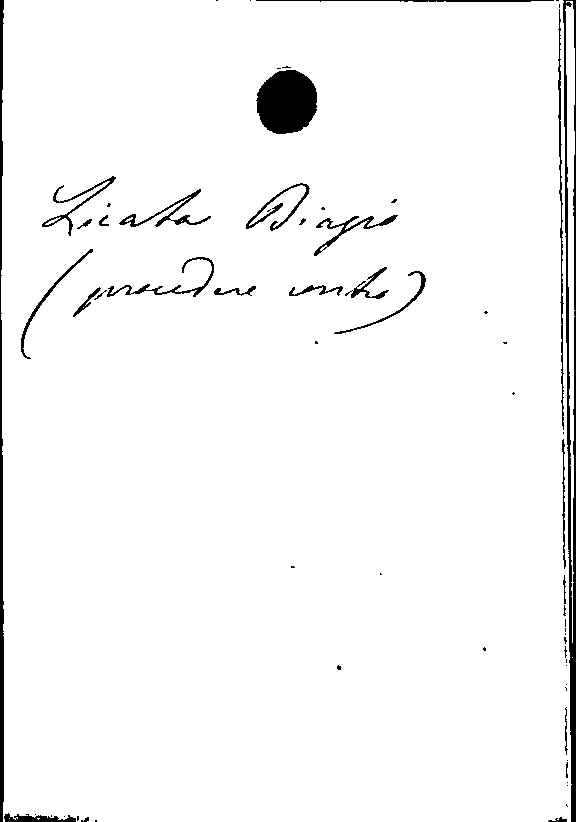 Licata Biagio
(procedere contro)